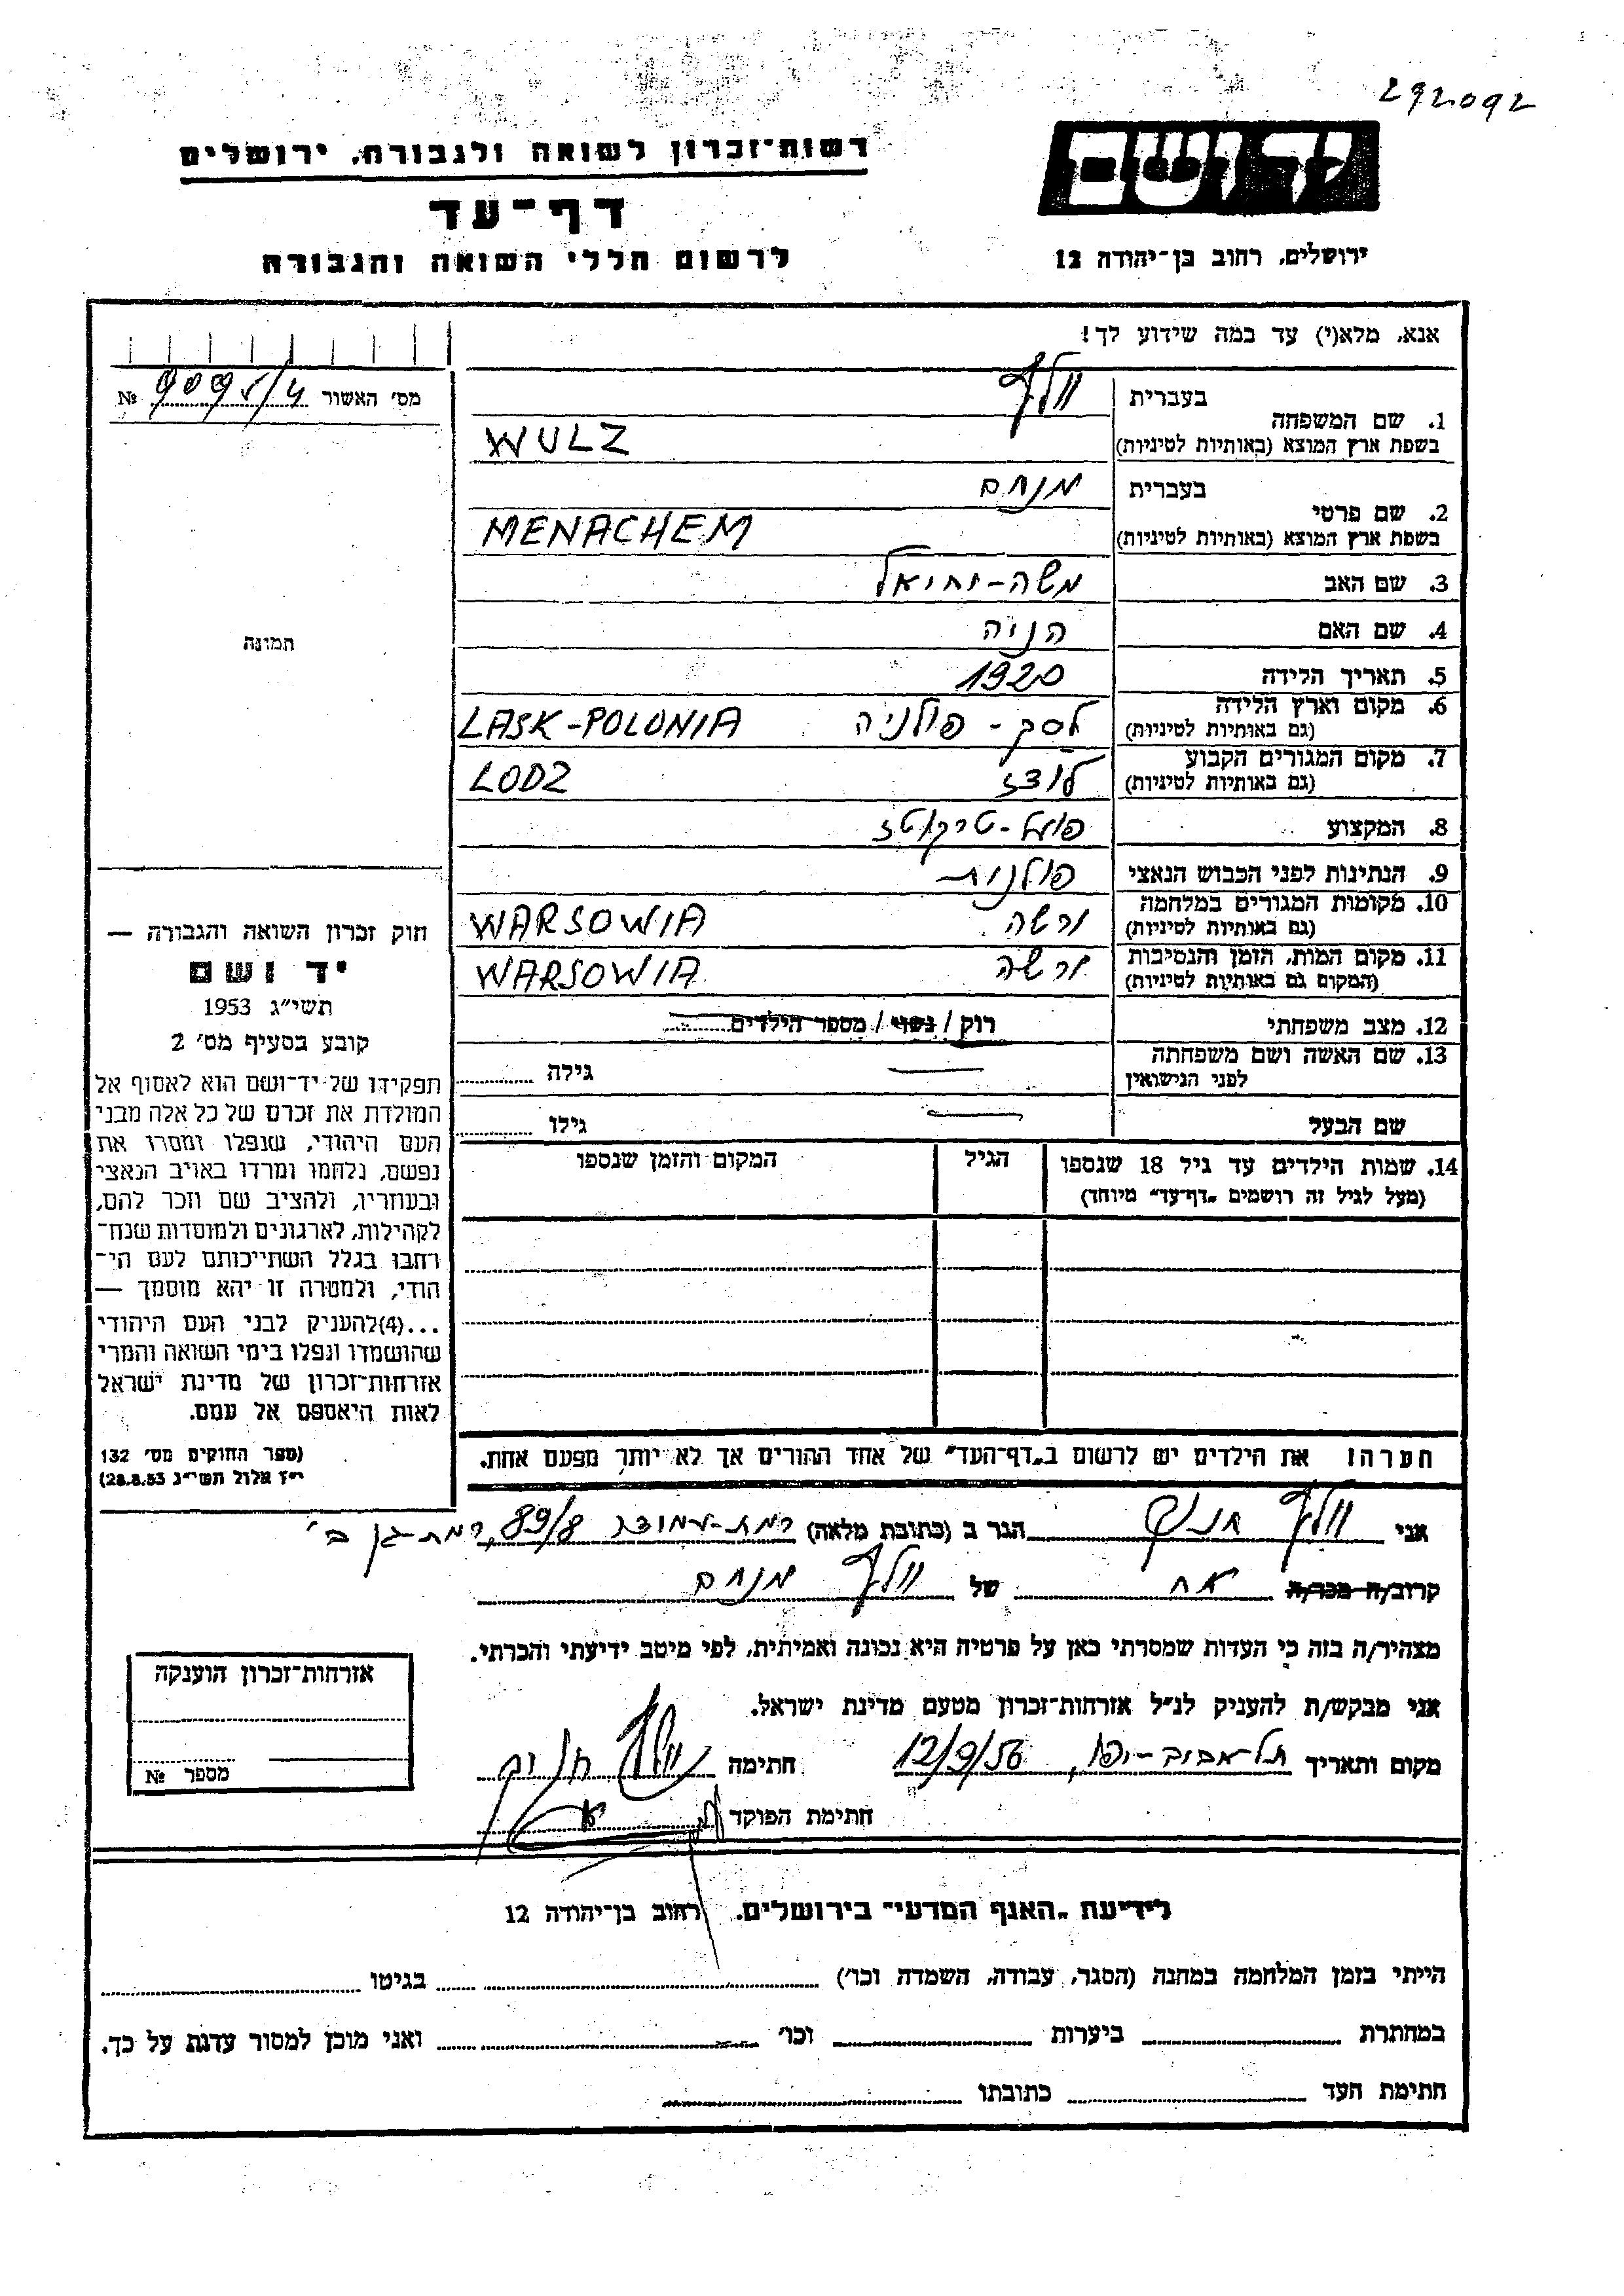 292092
ידושם
ירושלים, רחוב בן-יהודה 12
רשות-זכרון לשואה ולגבורה, ירושלים
דף-עד
לרשום חללי השואה והגבורה
אנא, מלא(י) עד כמה שידוע לך!
מס' האשור 9095/4 №
תמונה
1. שם המשפחה
בעברית וולץ
בשפת ארץ המוצא (באותיות לטיניות) WULZ
2. שם פרטי
בעברית מנחם
בשפת ארץ המוצא (באותיות לטיניות) MENACHEM
3. שם האב משה-יחיאל
4. שם האם הניה
5. תאריך הלידה 1920
6. מקום וארץ הלידה לסק - פולניה LASK-POLONIA
(גם באותיות לטיניות)
7. מקום המגורים הקבוע לודז LODZ
(גם באותיות לטיניות)
8. המקצוע פועל-טריקוטז
9. הנתינות לפני הכבוש הנאצי פולנית
10. מקומות המגורים במלחמה ורשה WARSOWIA
(גם באותיות לטיניות)
11. מקום המות, הזמן והנסיבות ורשה WARSOWIA
(המקום גם באותיות לטיניות)
12. מצב משפחתי רוק / נשוי / מספר הילדים
13. שם האשה ושם משפחתה — גילה
לפני הנישואין
שם הבעל — גילו
14. שמות הילדים עד גיל 18 שנספו הגיל המקום והזמן שנספו
(מעל לגיל זה רושמים "דף-עד" מיוחד)
חוק זכרון השואה והגבורה —
יד ושם
תשי"ג 1953
קובע בסעיף מס' 2
תפקידו של יד-ושם הוא לאסוף אל
המולדת את זכרם של כל אלה מבני
העם היהודי, שנפלו ומסרו את
נפשם, נלחמו ומרדו באויב הנאצי
ובעוזריו, ולהציב שם וזכר להם,
לקהילות, לארגונים ולמוסדות שנח-
רבו בגלל השתייכותם לעם הי-
הודי, ולמטרה זו יהא מוסמך —
...(4)להעניק לבני העם היהודי
שהושמדו ונפלו בימי השואה והמרי
אזרחות-זכרון של מדינת ישראל
לאות היאספם אל עמם.
(ספר החוקים מס' 132
י"ז אלול תשי"ג 28.8.53)
הערה! את הילדים יש לרשום ב"דף-העד" של אחד ההורים אך לא יותר מפעם אחת.
אני וולץ חנוך הגר ב (כתובת מלאה) רמת-עמידר 89/8, רמת-גן ב'
קרוב/ה מכר/ה אח של וולץ מנחם
מצהיר/ה בזה כי העדות שמסרתי כאן על פרטיה היא נכונה ואמיתית, לפי מיטב ידיעתי והכרתי.
אני מבקש/ת להעניק לנ"ל אזרחות-זכרון מטעם מדינת ישראל.
מקום ותאריך תל-אביב-יפו, 12/9/56 חתימה וולץ חנוך
חתימת הפוקד
אזרחות-זכרון הוענקה
מספר №
לידיעת "האגף המדעי" בירושלים, רחוב בן-יהודה 12
הייתי בזמן המלחמה במחנה (הסגר, עבודה, השמדה וכו') בגיטו
במחתרת ביערות וכו' ואני מוכן למסור עדות על כך.
חתימת העד כתובתו